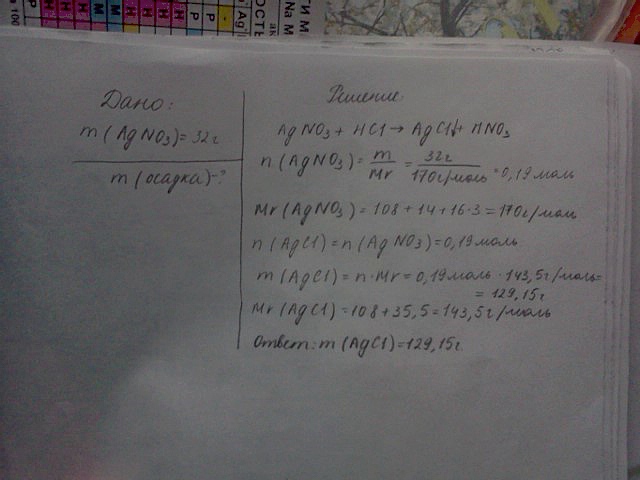 Дано:
m (AgNO3) = 32 г
m (осадка) - ?
Решение
AgNO3 + HCl → AgCl↓ + HNO3
n (AgNO3) = m/Mr = 32г/170г/моль = 0,19 моль
Mr (AgNO3) = 108 + 14 + 16·3 = 170г/моль
n (AgCl) = n (AgNO3) = 0,19 моль
m (AgCl) = n·Mr = 0,19 моль · 143,5 г/моль =
= 129,15 г
Mr (AgCl) = 108 + 35,5 = 143,5 г/моль
Ответ: m (AgCl) = 129,15 г.